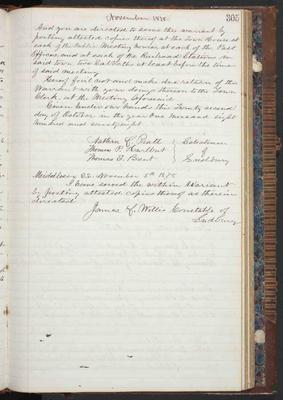 November 1878.
305
And you are directed to serve this warrant by
posting attested copies thereof at the Town House, at
each of the Public Meeting houses, at each of the Post
Offices, and at each of the Railroad Stations in
said Town, two Sabbaths at least before the time
of said meeting.
Hereof fail not and make due return of this
Warrant with your doings thereon to the Town
Clerk, at the Meeting aforesaid.
Given under our hands this Twenty second
day of October in the year One thousand eight
hundred and seventy eight.
Nathan L. Pratt } Selectmen
Thomas P. Hurlbut } of
Thomas B. Bent } Sudbury
Middlesex SS. November 5th 1878
I have served the within Warrant
by posting attested copies thereof as therein
directed
James L. Willis Constable of
Sudbury